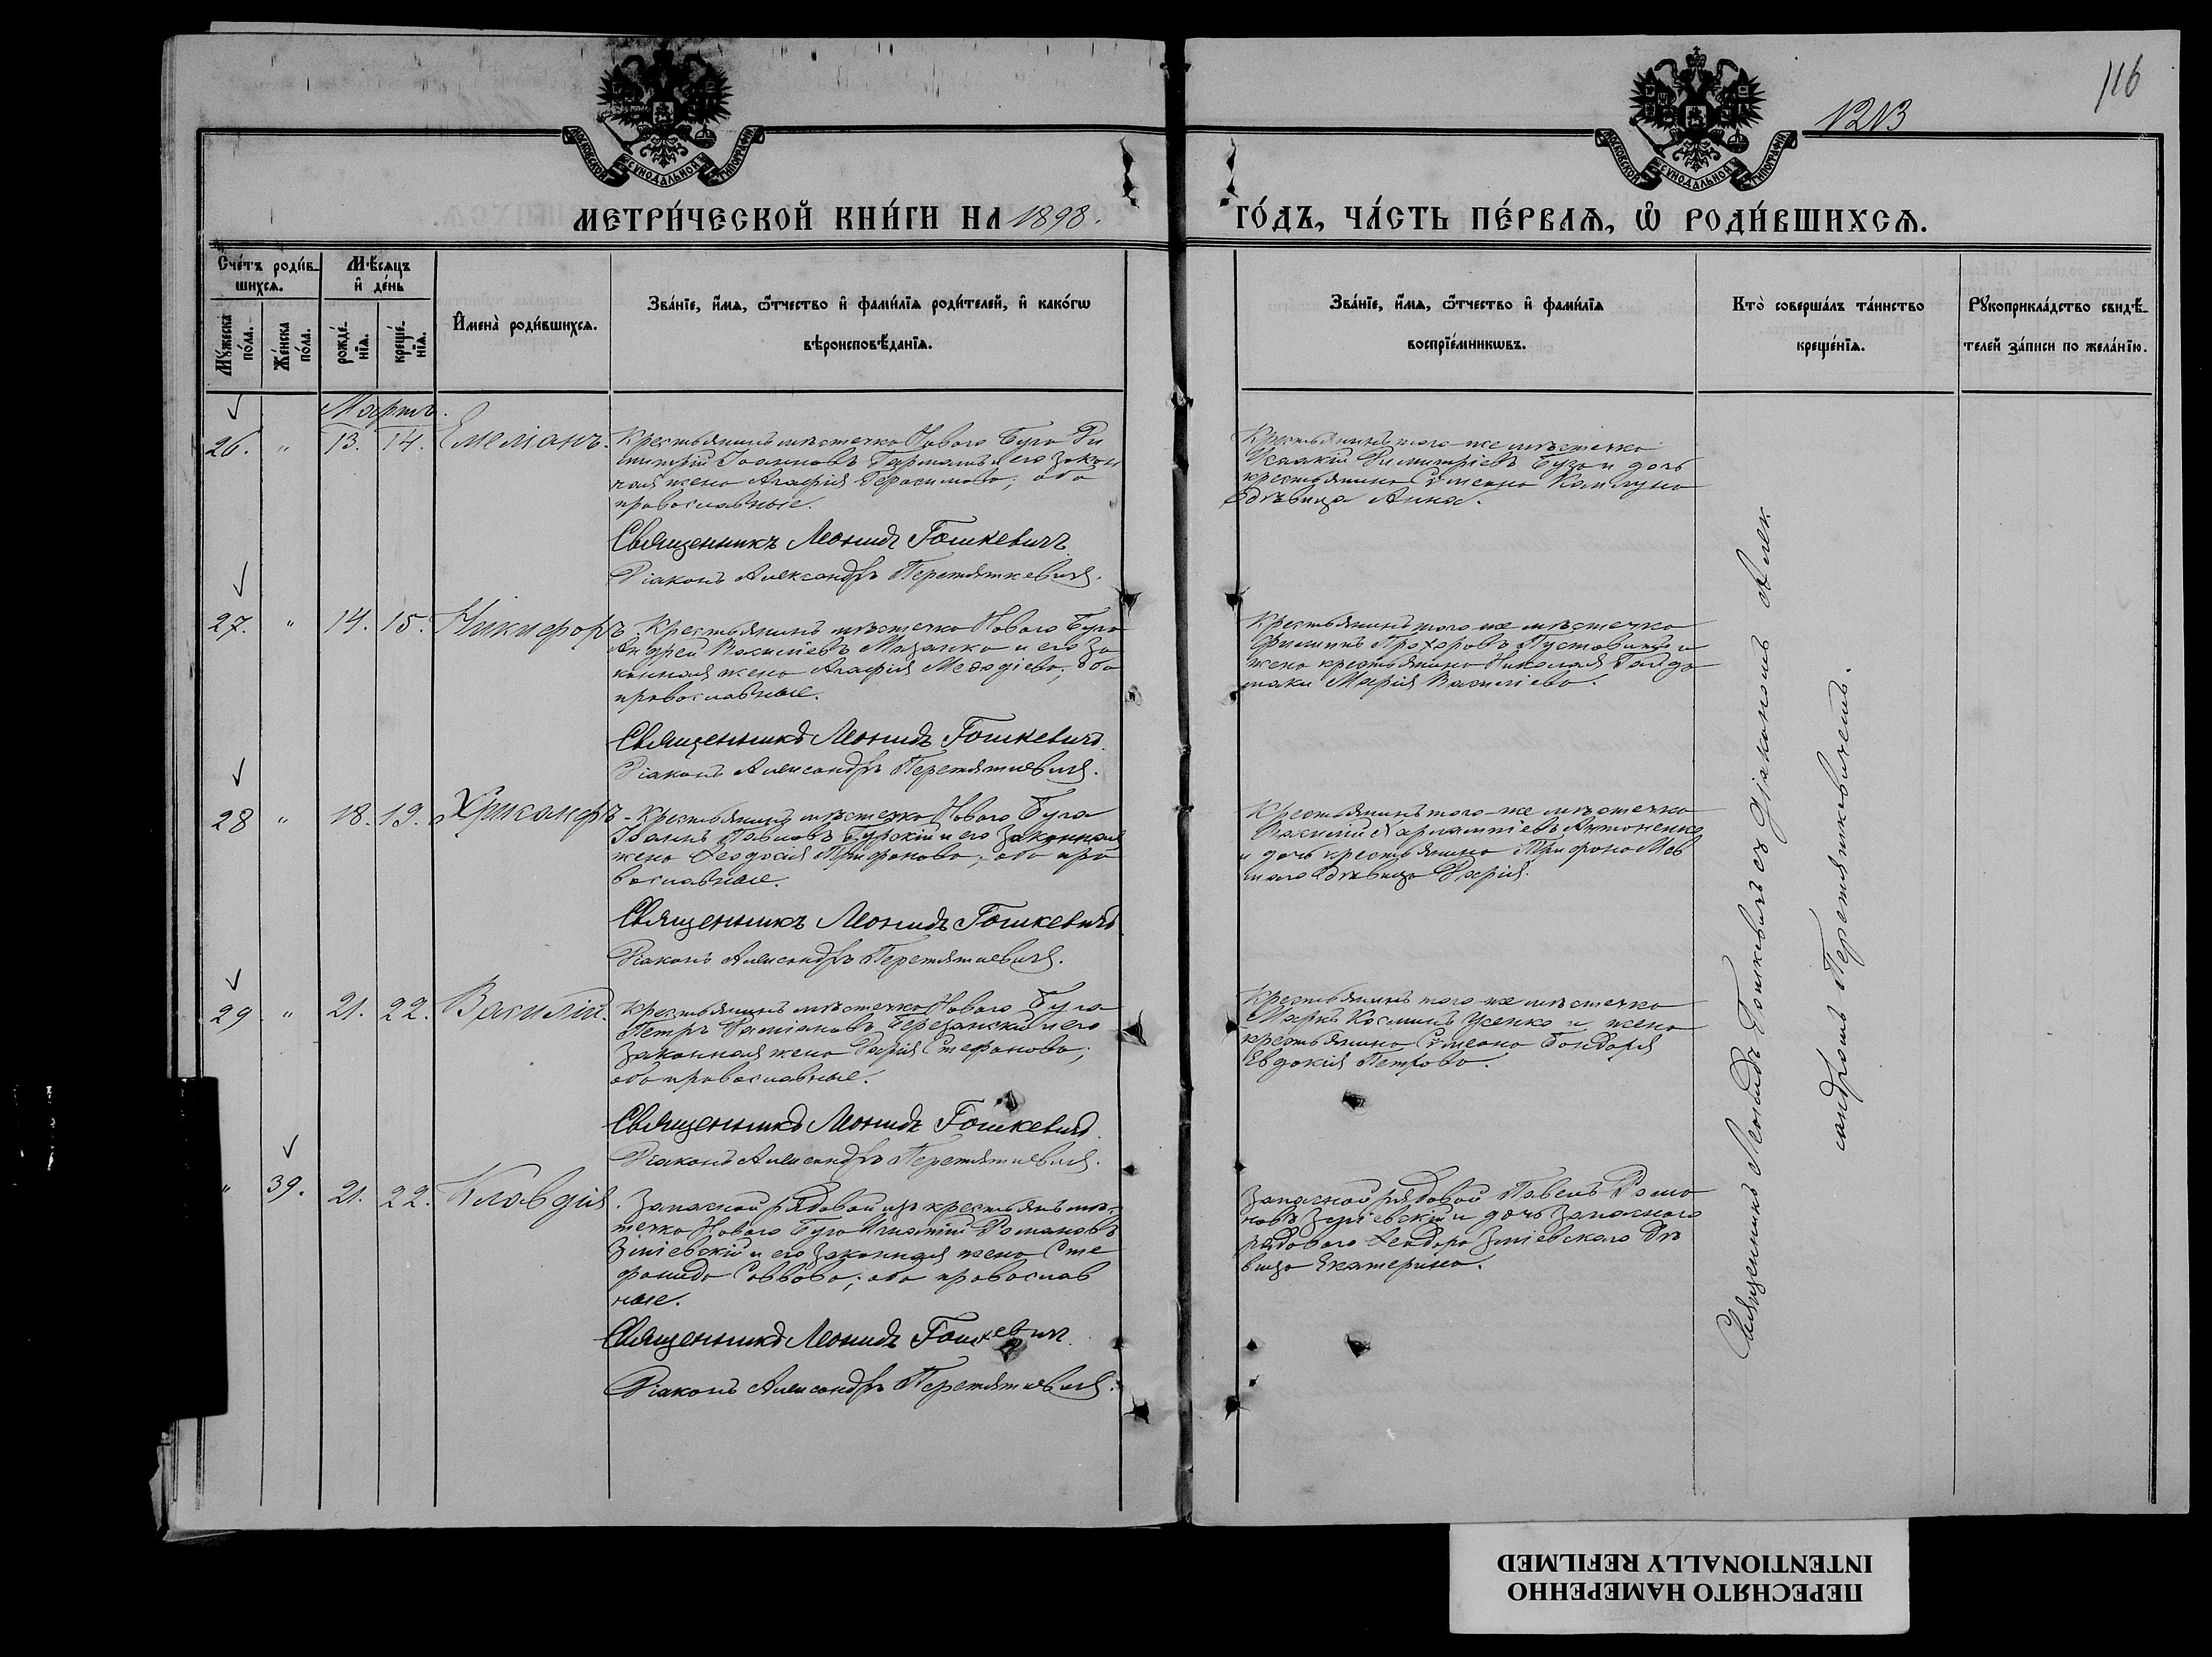 116
1213
МОСКОВСКОЙ СѴНОДАЛЬНОЙ ТИПОГРАФІИ
МОСКОВСКОЙ СѴНОДАЛЬНОЙ ТИПОГРАФІИ
МЕТРИ́ЧЕСКОЙ КНИ́ГИ НА 1898.
ГО́ДЪ, ЧА́СТЬ ПЕ́РВАѦ, Ѡ҆ РОДИ́ВШИХСѦ.
Сче́тъ роди́в-
шихсѧ.
Мꙋ́жеска по́ла.
Же́нска по́ла.
Мѣ́сяцъ
и҆ де́нь
рожде́-нїѧ.
креще́-нїѧ.
И҆мена̀ роди́вшихсѧ.
Зва́нїе, и҆́мѧ, ѻ҆́тчество и҆ фами́лїѧ роди́телей, и҆ како́гѡ
вѣроисповѣ́данїѧ.
Зва́нїе, и҆́мѧ, ѻ҆́тчество и҆ фами́лїѧ
воспрїе́мникѡвъ.
Кто̀ соверша́лъ та́инство
креще́нїѧ.
Рꙋкоприкла́дство свидѣ́-
телей за́писи по жела́нїю.
Мартъ.
26. " 13. 14. Емеліанъ.
Крестьянинъ мѣстечка Новаго Буга Ди
митрій Іоанновъ Гармашъ и его закон
ная жена Агафія Герасимова; оба
православные.
Священникъ Леонидъ Гошкевичъ
Діаконъ Александръ Перетяткевичъ.
Крестьянинъ того-же мѣстечка
Исаакій Димитріевъ Буза и дочь
крестьянина Сѵмеона Каплуна
дѣвица Анна.
27. " 14. 15. Никифоръ
Крестьянинъ мѣстечка Новаго Буга
Андрей Василіевъ Мазанко и его за
конная жена Агафія Меѳодіева; оба
православные.
Священникъ Леонидъ Гошкевичъ.
Діаконъ Александръ Перетяткевичъ.
Крестьянинъ того-же мѣстечка
Филиппъ Прохоровъ Пустовитъ и
жена крестьянина Николая Гайда
маки Марія Василіева.
28 " 18. 19. Хрисанфъ
Крестьянинъ мѣстечка Новаго Буга
Іоаннъ Павловъ Бурскій и его законная
жена Ѳеодосія Трифонова; оба пра
вославные.
Священникъ Леонидъ Гошкевичъ
Діаконъ Александръ Перетяткевичъ.
Крестьянинъ того-же мѣстечка
Василій Харлампіевъ Антоненко
и дочь крестьянина Трифона
дѣвица Дарія.
29 " 21. 22. Василій.
Крестьянинъ мѣстечка Новаго Буга
Петръ Даміановъ Березанскій и его
законная жена Дарія Стефанова;
оба православные.
Священникъ Леонидъ Гошкевичъ.
Діаконъ Александръ Перетяткевичъ.
Крестьянинъ того-же мѣстечка
Маркъ Косминъ Усенко и жена
крестьянина Сѵмеона Бондаря
Евдокія Петрова.
" 39. 21. 22. Клавдія.
Запасной рядовой изъ крестьянъ мѣс-
течка Новаго Буга Игнатій Романовъ
Зміевскій и его законная жена Сте
фанида Саввова; оба православ
ные.
Священникъ Леонидъ Гошкевичъ.
Діаконъ Александръ Перетяткевичъ.
Запасной рядовой Павелъ Рома
новъ Зміевскій и дочь запасного
рядового Ѳеодора Зміевскаго дѣ
вица Екатерина.
Священникъ Леонидъ Гошкевичъ съ діакономъ Алек
сандромъ Перетяткевичемъ.
ПЕРЕСНЯТО НАМЕРЕННО
INTENTIONALLY REFILMED